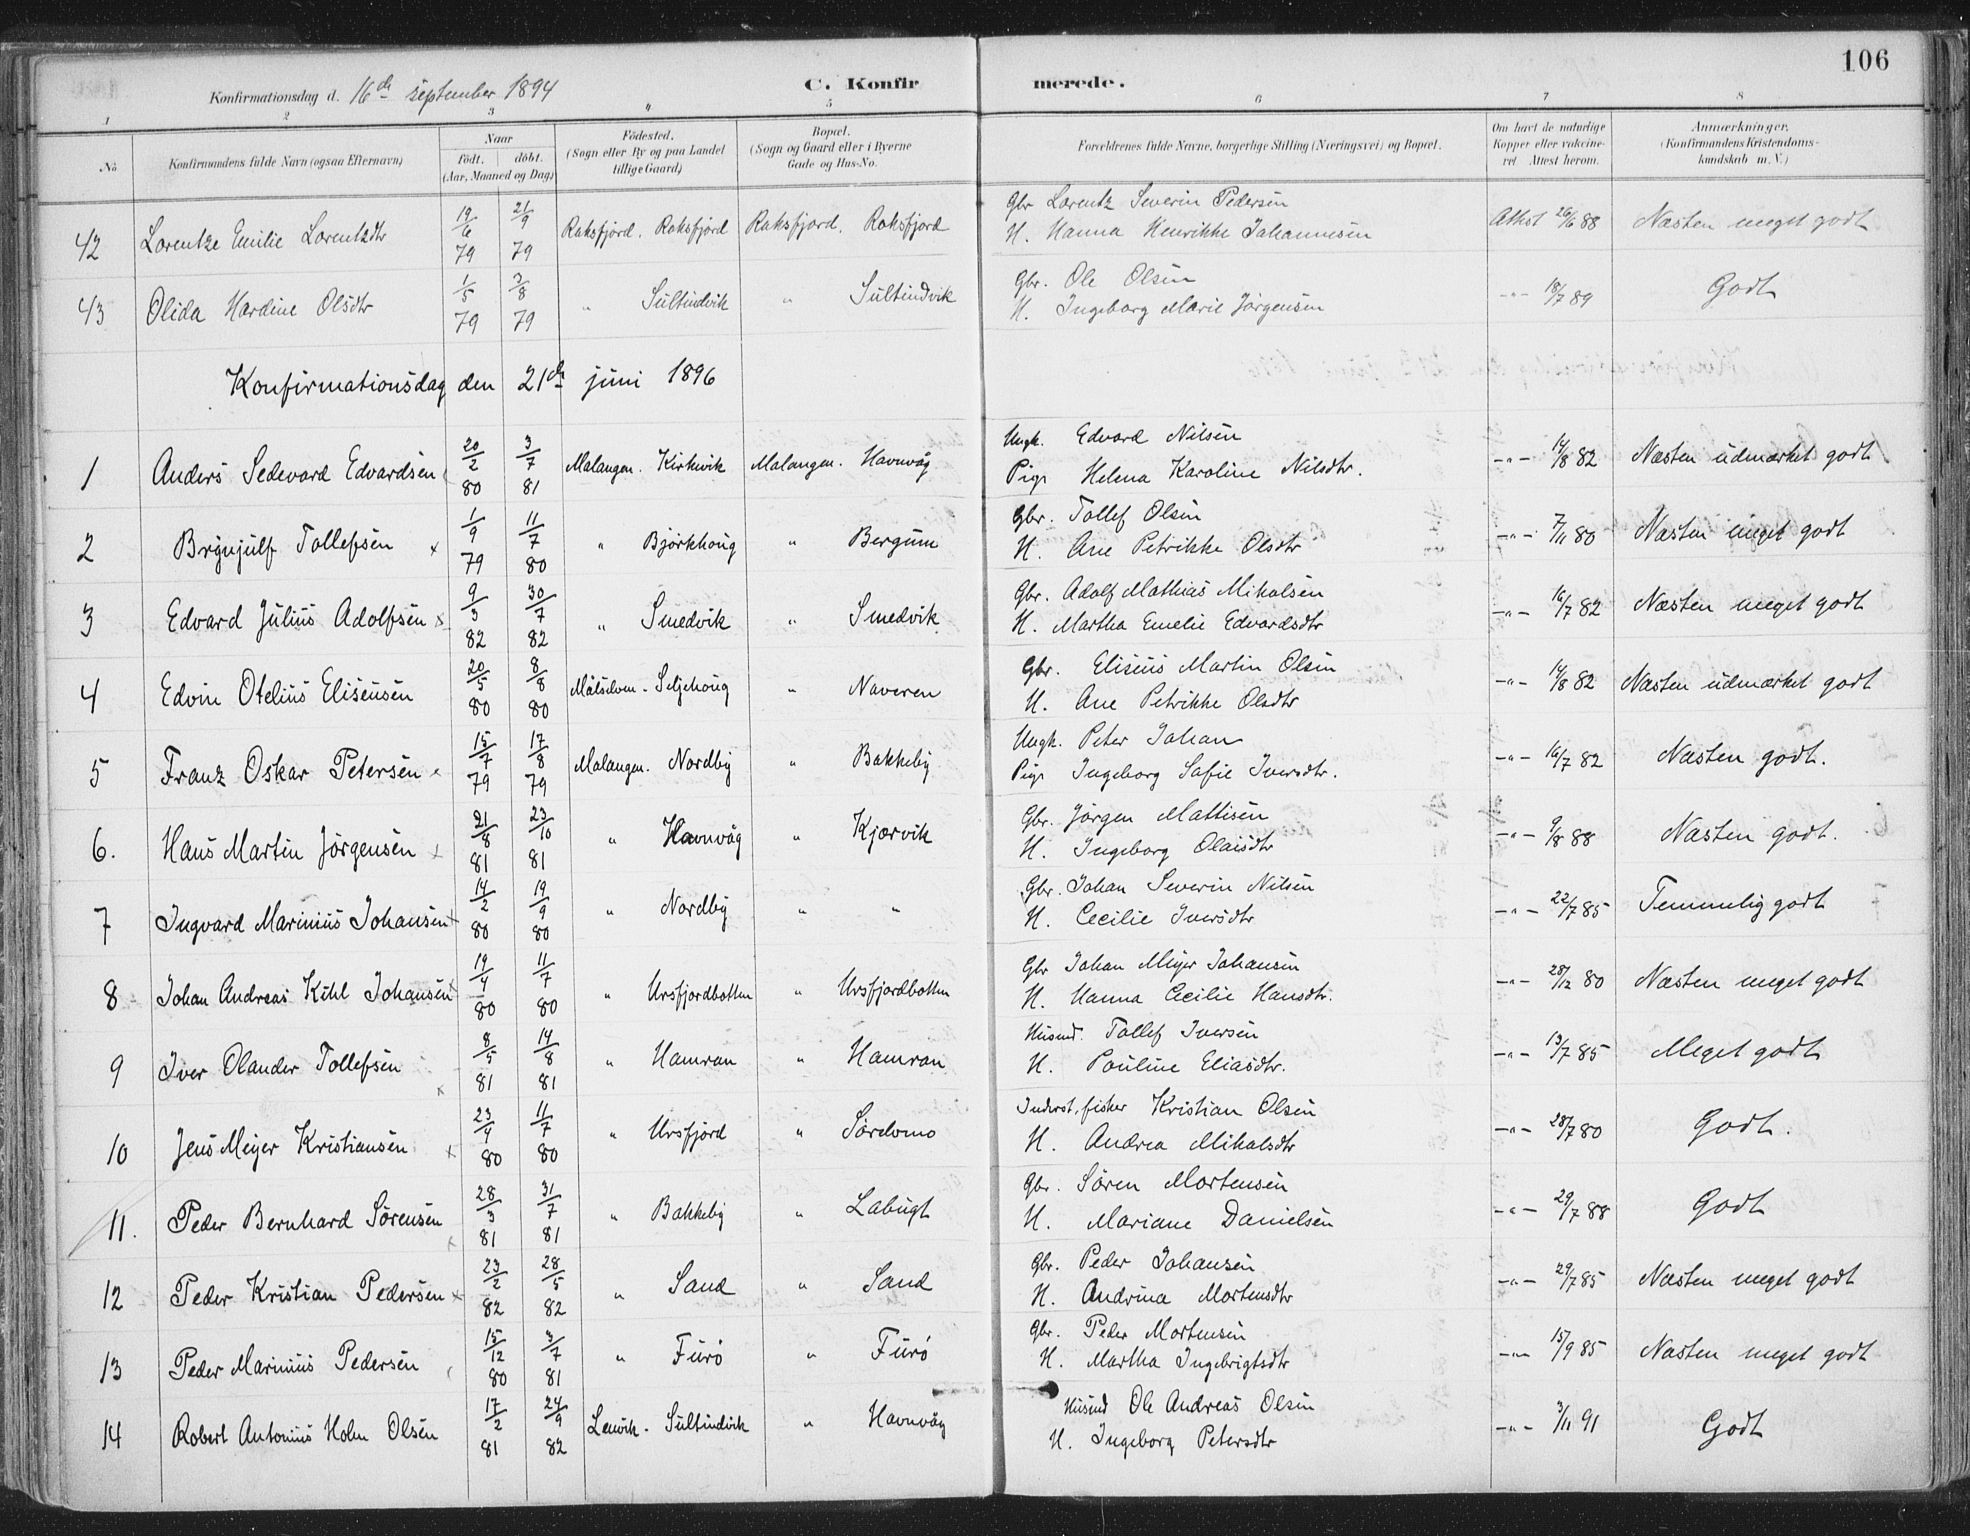 106
Konfirmationsdag d. 16de september 1894
C. Konfirmerede.
1 2 3 4 5 6 7 8
No
Konfirmandens fulde Navn (ogsaa Efternavn)
Naar
födt. döbt.
(Aar, Maaned og Dag)
Födested.
(Sogn eller By og paa Landet tillige Gaard)
Bopæl.
(Sogn og Gaard eller i Byerne Gade og Hus-No.
Forældrenes fulde Navne, borgerlige Stilling (Næringsvei) og Bopæl.
Om havt de naturlige Kopper eller vakcineret Attest herom.
Anmærkninger.
(Konfirmandens Kristendomskundskab m. V.)
42 Lorentze Emilie Lorentzdtr 19/6 79 21/9 79 Roksfjord. Roksfjord Roksfjord. Roksfjord Gbr Lorentz Severin Pedersen Attest 26/6 88 Næsten meget godt
H. Hanna Henrikke Johannesen
43 Olida Hardine Olsdtr 1/5 79 3/8 79 " Sultindvik " Sultindvik Gbr. Ole Olsen -"- 18/7 89 Godt
H. Ingeborg Marie Jörgensen
Konfirmationsdag den 21de juni 1896
1 Anders Sedevard Edvardsen 20/2 80 3/7 81 Malangen. Kirkevik Malangen. Havnvåg Ungk. Edvard Nilsen -"- 14/8 82 Næsten udmærket godt
Pige Helena Karoline Nilsdtr.
2 Brynjulf Tollefsen x 1/9 79 11/7 80 " Bjørkhoug " Bergum Gbr. Tollef Olsen -"- 7/11 80 Næsten meget godt
H. Ane Petrikke Olsdtr
3 Edvard Julius Adolfsen x 9/3 82 30/7 82 " Smedvik " Smedvik Gbr. Adolf Mathias Mikalsen -"- 16/7 82 Næsten meget godt
H. Martha Emelie Edvardsdtr
4 Edvin Otelius Eliseusen 20/5 80 8/8 80 Målselven. Seljehoug " Naveren Gbr. Eliseus Martin Olsen -"- 14/8 82 Næsten udmærket godt
H. Ane Petrikke Olsdtr
5 Franz Oskar Petersen x 15/7 79 17/8 79 Malangen. Nordby " Bakkeby Ungk. Peter Johan -"- 16/7 82 Næsten godt.
Pige Ingeborg Sofie Iversdtr.
6. Hans Martin Jørgensen x 21/8 81 23/10 81 " Havnvåg " Kjærvik Gbr. Jørgen Mattisen -"- 9/8 88 Næsten godt.
H. Ingeborg Olaisdtr
7 Ingvard Marinius Johansen x 14/2 80 19/9 80 " Nordby " " Gbr. Johan Severin Nilsen -"- 22/7 85 Temmelig godt
H. Cecilie Iversdtr
8 Johan Andreas Kihl Johansen x 19/4 80 11/7 80 " Ursfjordbotten " Ursfjordbotten Gbr Johan Meyer Johansen -"- 28/12 80 Næsten meget godt
H. Hanna Cecilie Hansdtr.
9 Iver Olander Tollefsen x 8/5 81 14/8 81 " Hamran " Hamran Husmd. Tollef Iversen -"- 13/7 85 Meget godt
H. Pauline Eliasdtr.
10 Jens Meyer Kristiansen x 23/4 80 11/7 80 " Ursfjord " Sørdomo Inderst, fisker Kristian Olsen -"- 28/7 80 Godt.
H. Andrea Mikalsdtr
11. Peder Bernhard Sørensen x 28/3 81 31/7 81 " Bakkeby " Labugt Gbr. Søren Mortensen -"- 29/7 88 Godt
H. Mariane Danielsen
12 Peder Kristian Pedersen x 23/2 82 28/5 82 " Sand " Sand Gbr. Peder Johansen -"- 29/7 85 Næsten meget godt
H. Andrina Mortensdtr
13 Peder Marinius Pedersen 15/12 80 3/7 81 " Furø " Furø Gbr. Peder Mortensen -"- 15/9 85 Næsten meget godt
H. Martha Ingebrigtsdtr
14 Robert Antonius Holm Olsen 17/2 81 24/9 82 Lenvik. Sultindvik " Havnvåg Husmd Ole Andreas Olsen -"- 3/11 91 Godt
H. Ingeborg Petersdtr